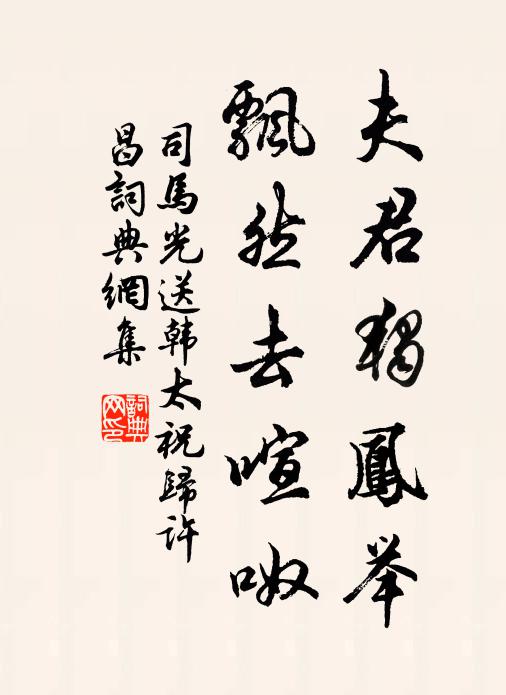 夫君獨鳳举
飄然去喧呶
司馬光送韩太祝歸許
昌詞典網集
詞典
网印